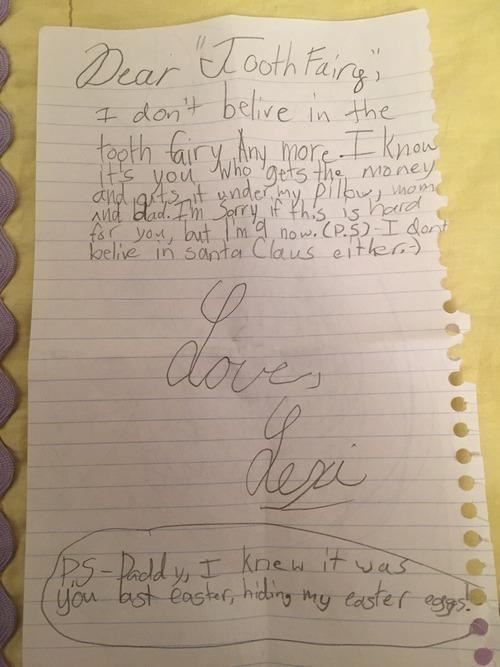 Dear "Tooth Fairy",
I don't belive in the
tooth fairy Any more. I know
it's you who gets the money
and puts it under my pillow, mom
and dad. I'm sorry if this is hard
for you, but I'm 9 now. (P.S)-I dont
belive in santa Claus either:-)
Love,
Lexi
P.S- Daddy, I knew it was
you last easter, hiding my easter eggs!